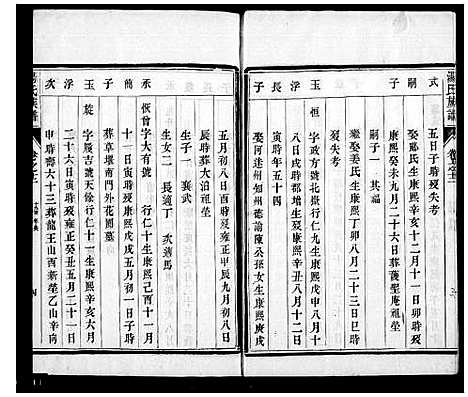 湯氏族譜
五日子時歿失考
式 娶鄢氏生康熙辛亥十一月初一日卯時歿
康熙癸未九月二十六日葬護聖庵祖塋
嗣 嗣子一 其福
繼娶姜氏生康熙丁卯八月二十三日戌時
歿失考
子 恒 字政方號花臺行仁九生康熙戊申八月十
七日戌時郡增生歿康熙辛卯八月十二日
浮
辰 寅時享年五十四
子 娶阿達州知州德諭陳公孫女生康熙庚戌
五月初八日酉時歿雍正甲辰九月初八日
辰時葬大泊祖塋
生子一 襄武
生女二 長適丁 次適馬
承 恆首字大有號 行仁十生康熙己酉十一月
十八日寅時歿康熙戊戌五月初一日子時
子 葬草堰南門外花園墓
玉 旋 字履吉號天餘行仁十一生康熙辛亥六月
浮 二十六日寅時歿雍正癸丑五月二十一日
次 申時壽六十三葬龍王山西新塋乙山辛向
湯氏族譜